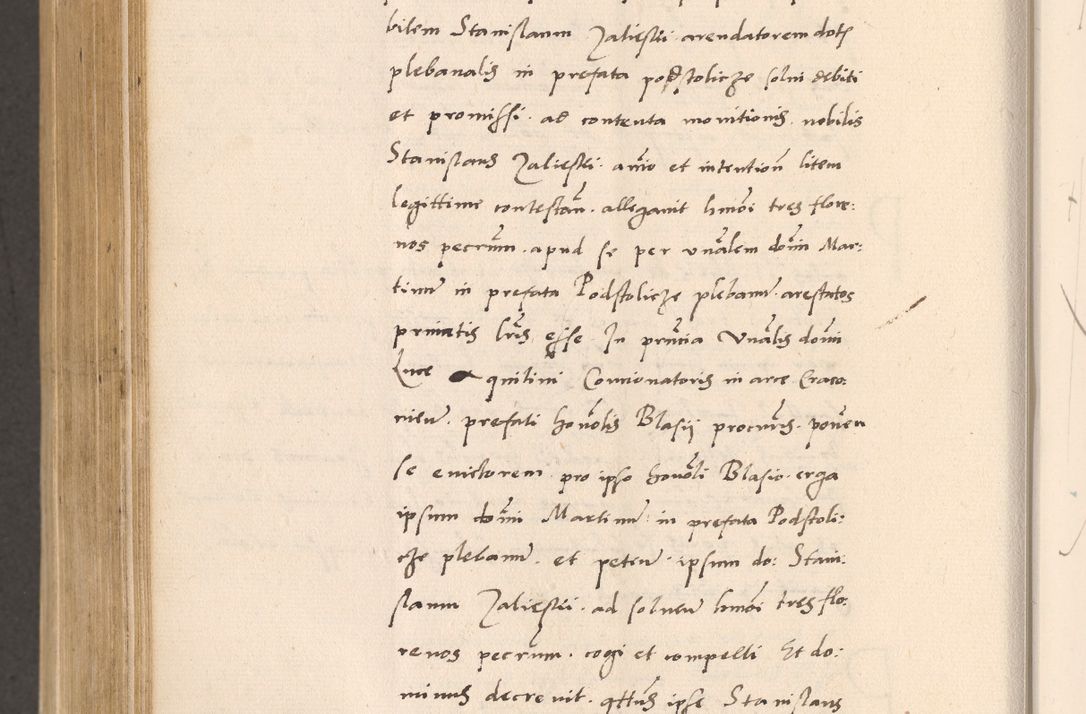 bilem Stanislaum Zaliesky arendatorem dotis
plebanalis in prefata postolicze solvi debiti
et promissi. ad contenta monitionis nobilis
Stanislaus Zaliesky. animo et intention litem
legittime contestan. allegavit hmoi tres flore:
nos pecunm. apud se per vnalem domi Mar:
tinu in prefata Podstolicze plebanu arestatos
privatis lris esse In pntia Vnalis domi
Luce Aquilini Concionatoris in arce Craco:
vien. prefati honolis Blasij procuris. ponen
se evictorem pro ipso honoli Blasio. erga
ipsum domi Martinu in prefata Podstoli:
cze plebanu. et peten ipsum do: Stani:
slaum Zaliesky. ad solven hmoi tres flo:
renos pecunm. cogi et compelli Et do:
minus decrevit. qttus ipse Stanislaus